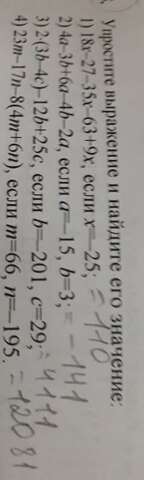 Упростите выражение и найдите его значение:
1) 18x-27-35x-63+9x, если x=-25; =110
2) 4a-3b+6a-4b-2a, если a=-15, b=3; = -141
3) 2(3b-4c)-12b+25c, если b=-201, c=29; = 4111
4) 23m-17n-8(4m+6n), если m=66, n=-195. = 12081